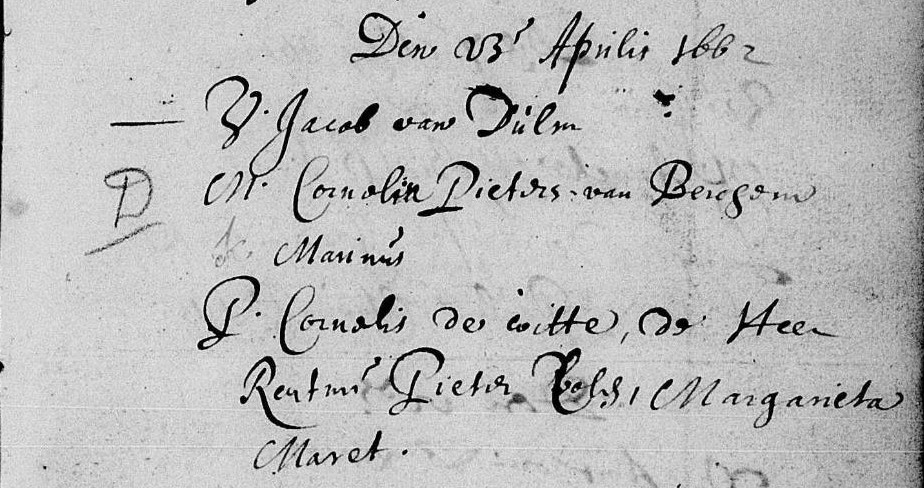 Den 23 Aprilis 1662
V. Jacob van Dúlm
D M. Cornelia Pieters van Berchem
K. Marinús
P. Cornelis de Witte, de Heer
Rentmr Pieter, Margarieta
Maret.